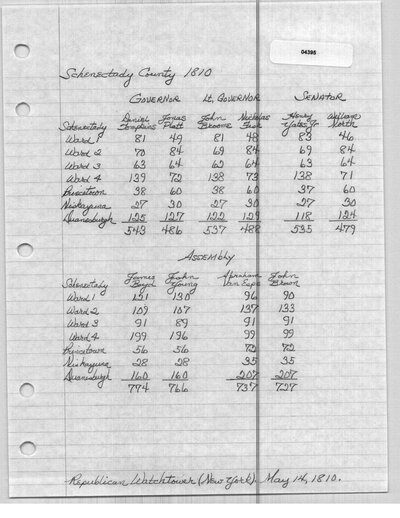 04395
Schenectady County 1810
GOVERNOR Lt. GOVERNOR SENATOR
Daniel Jonas John Nicholas Henry William
Schenectady Tompkins Platt Broome Fish Yates Jr North
Ward 1 81 49 81 48 83 46
Ward 2 70 84 69 84 69 84
Ward 3 63 64 62 64 63 64
Ward 4 139 72 138 73 138 71
Princetown 38 60 38 60 37 60
Niskayuna 27 30 27 30 27 30
Duanesburgh 125 127 122 129 118 124
543 486 537 488 535 479
ASSEMBLY
James John Abraham John
Schenectady Boyd Young Van Eps Brown
Ward 1 121 130 96 90
Ward 2 109 107 137 133
Ward 3 91 89 91 91
Ward 4 199 196 99 99
Princetown 56 56 72 72
Niskayuna 28 28 35 35
Duanesburgh 160 160 207 207
774 766 737 727
Republican Watchtower (New York). May 14, 1810.